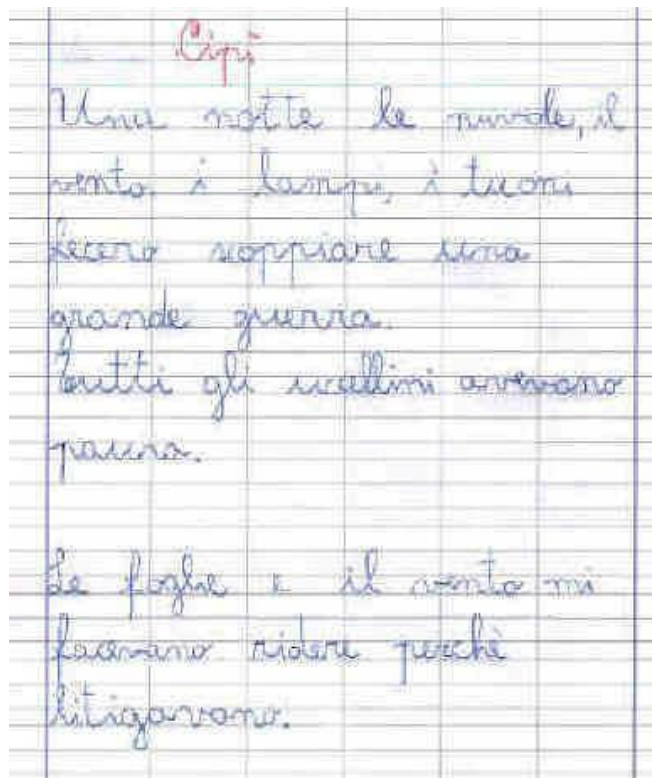 Cipì
Una notte le nuvole, il
vento, i lampi, i tuoni
fecero scoppiare una
grande guerra.
Tutti gli uccellini avevano
paura.
Le foglie e il vento mi
facevano ridere perchè
litigavano.